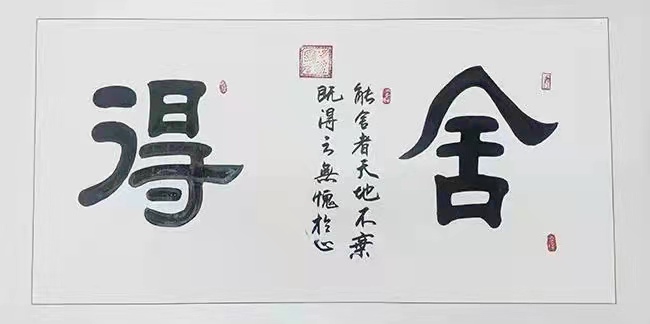 舍
能舍者天地不棄
既得之無愧於心
得